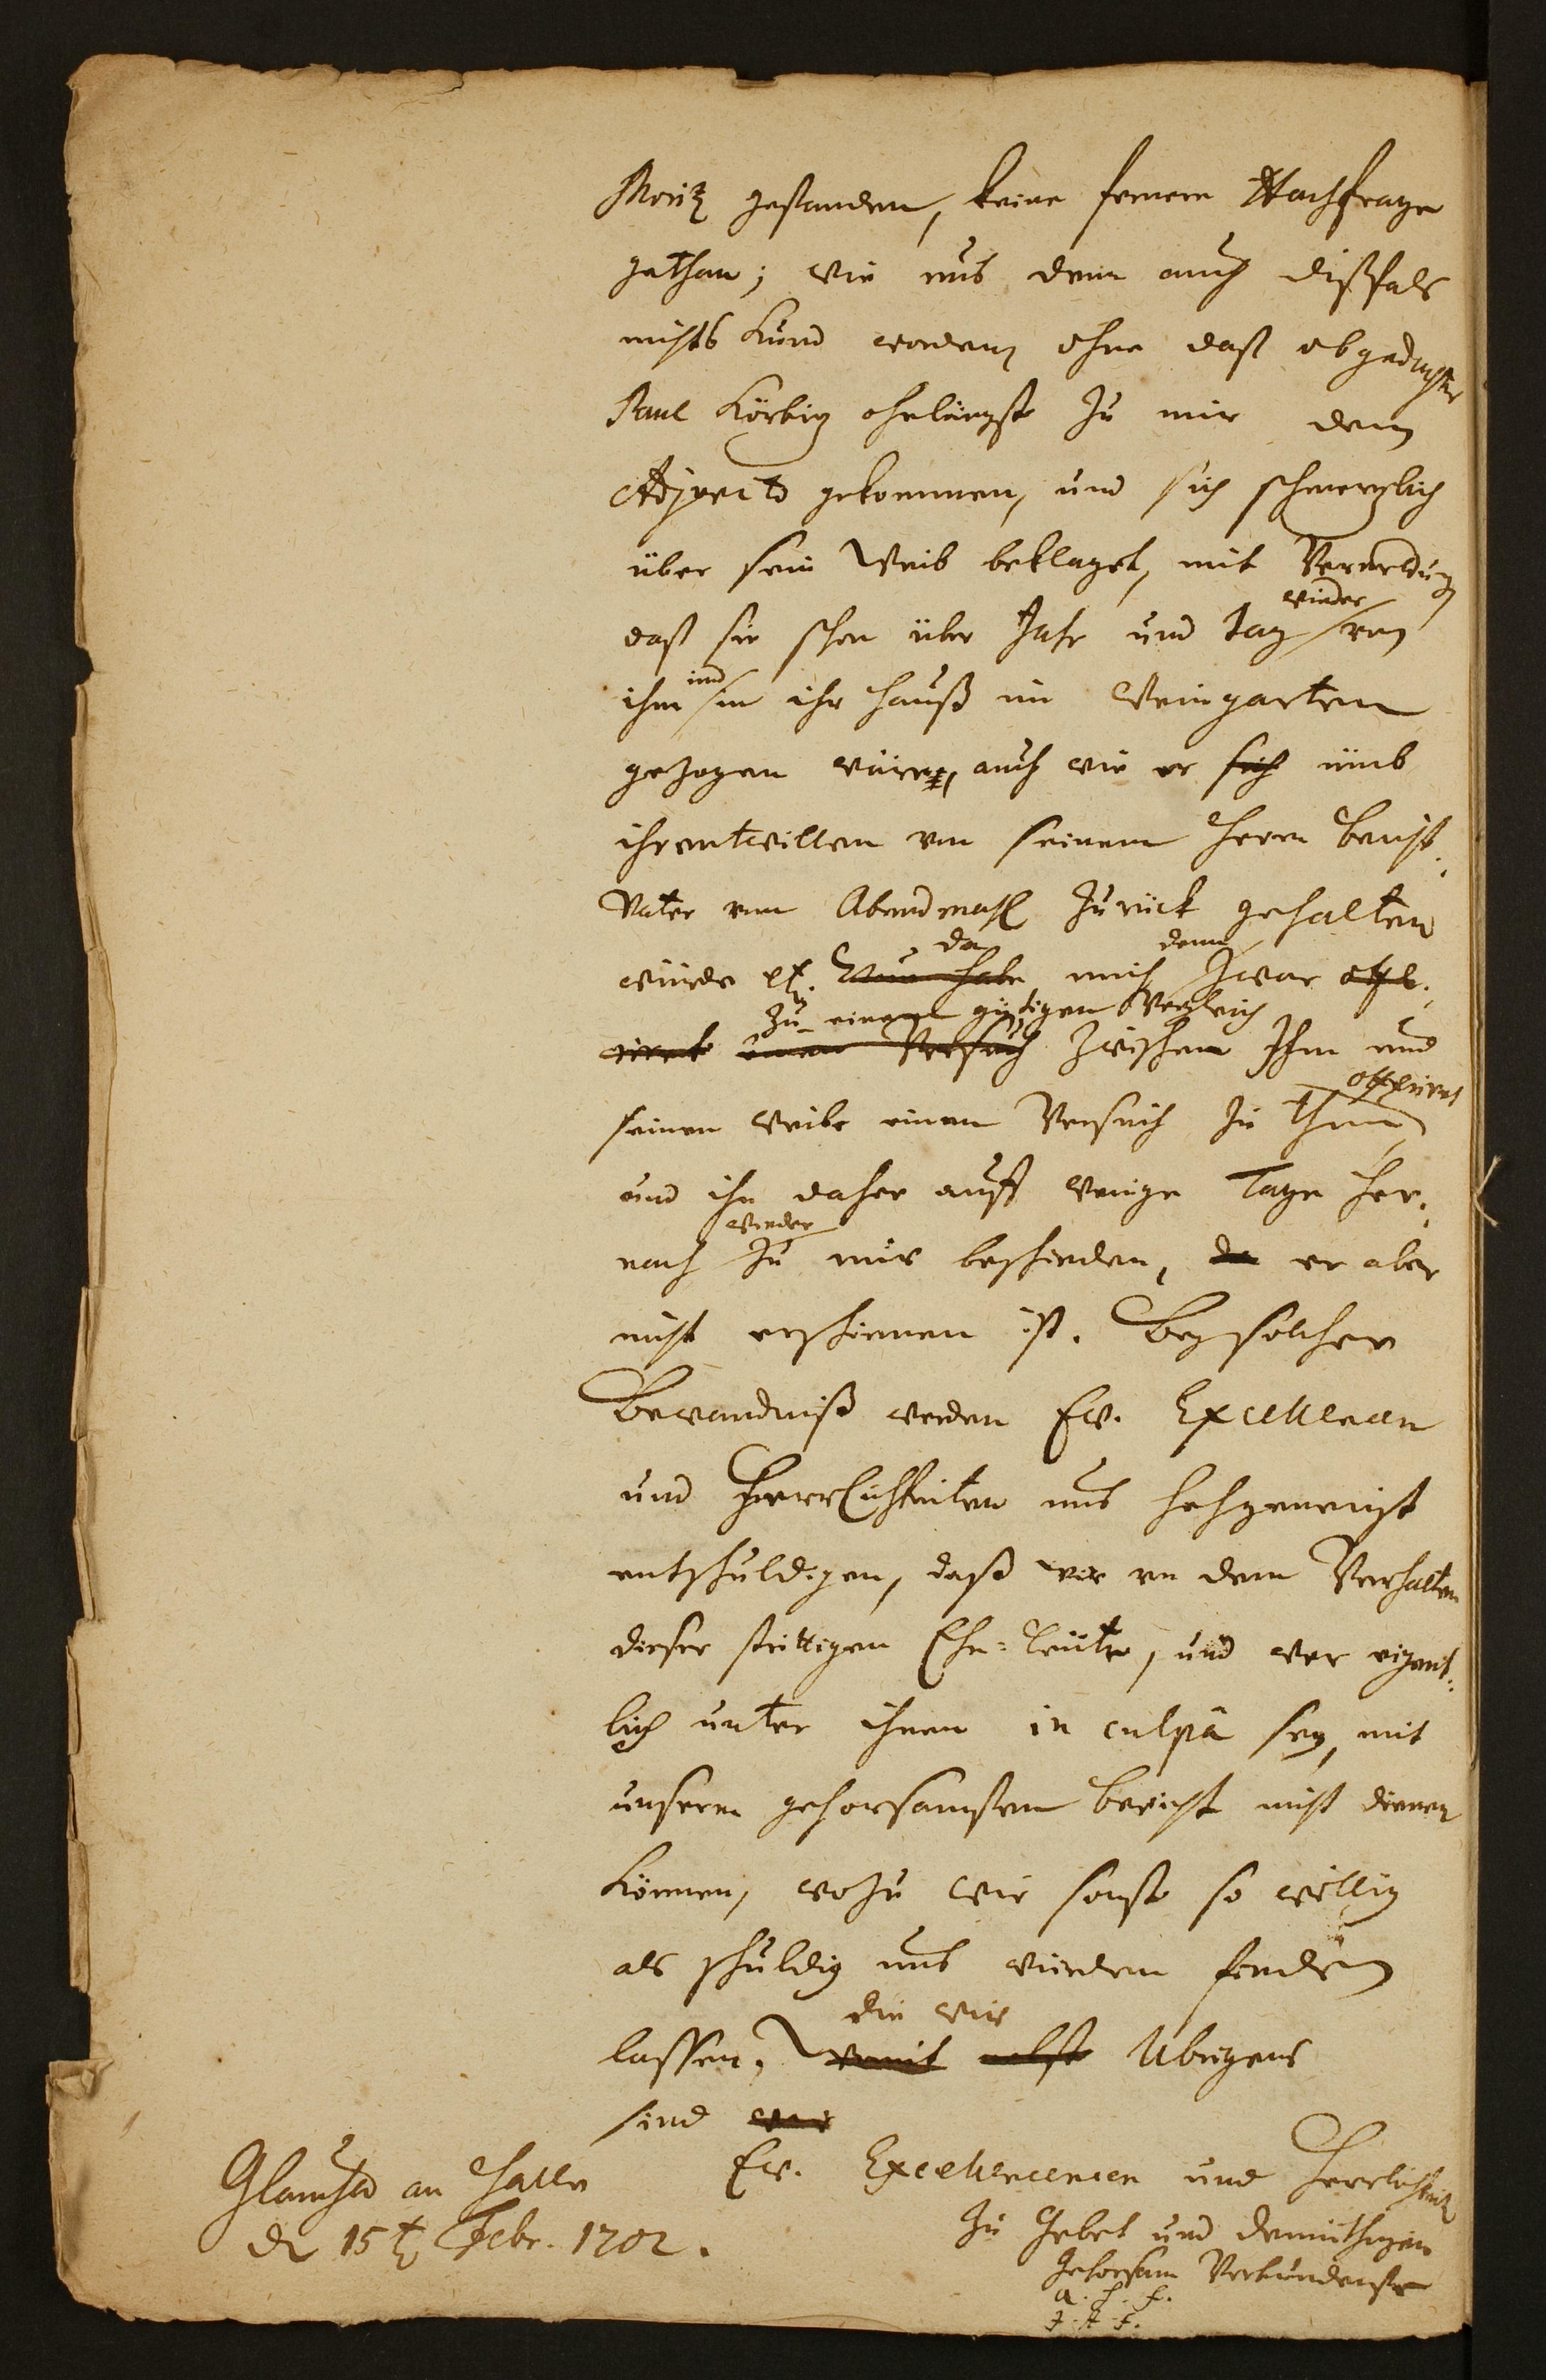 Moritz gestanden, keine fernere Nachfrage
gethan; wie uns denn auch dißfals
nichts kund worden, ohne daß obgedachter
Paul Körbig ohnlängst zu mir dem
Adjuncto gekommen, und sich schmerzlich
über sein Weib beklaget, mit Vermeldung
wieder
daß sie schon über Jahr und Tag von
ihm und in ihr Hauß im Weingarten
gezogen wäre, auch wie er sich umb
ihrentwillen von seinem Herrn Beicht-
Vater vom Abendmahl zurück gehalten
da denn
würde etc. Nun habe mich zwar offe-
zu einem gütigen Vergleich
riret einen Versuch zwischen Ihm und
offeriret
seinem Weibe einen Versuch zu thun,
und ihn daher auff wenige Tage her-
wieder
nach zu mir beschieden, da er aber
nicht erschienen ist. Bey solcher
Bewandniß werden Ew. Excellencen
und Herrlichkeiten uns hochgeneigt
entschuldigen, daß wir von dem Verhalten
dieser strittigen Ehe-Leute, und wer eigent-
lich unter ihnen in culpâ sey, mit
unserm gehorsamsten Bericht nicht dienen
können, wozu wir sonst so willig
als schuldig uns würden finden
die wir
lassen, womit nebst Ubrigens
sind wir
Ew. Excellencencen und Herrlichkeit
Glaucha an Halle
d 15t Febr. 1702.
zu Gebet und demüthigen
Gehorsam Verbundenste
A. H. F.
J. A. F.